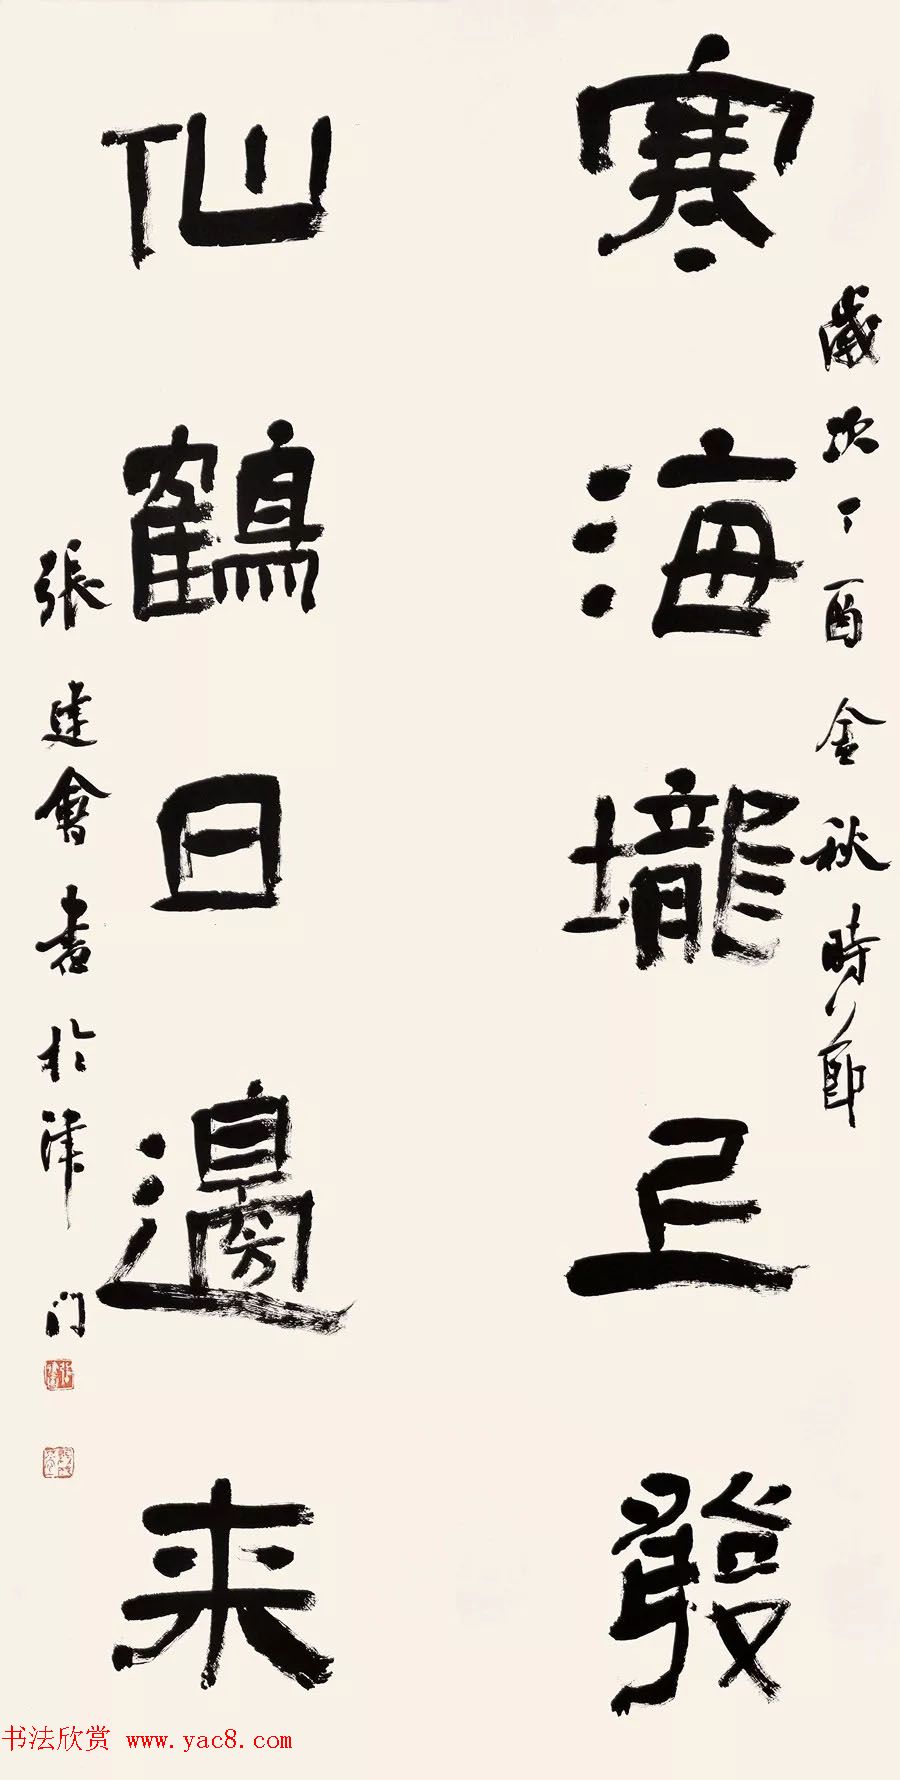 歲次丁酉金秋時節
寒海壠上發
仙鶴日邊来
張建會書於津门
书法欣赏 www.yac8.com